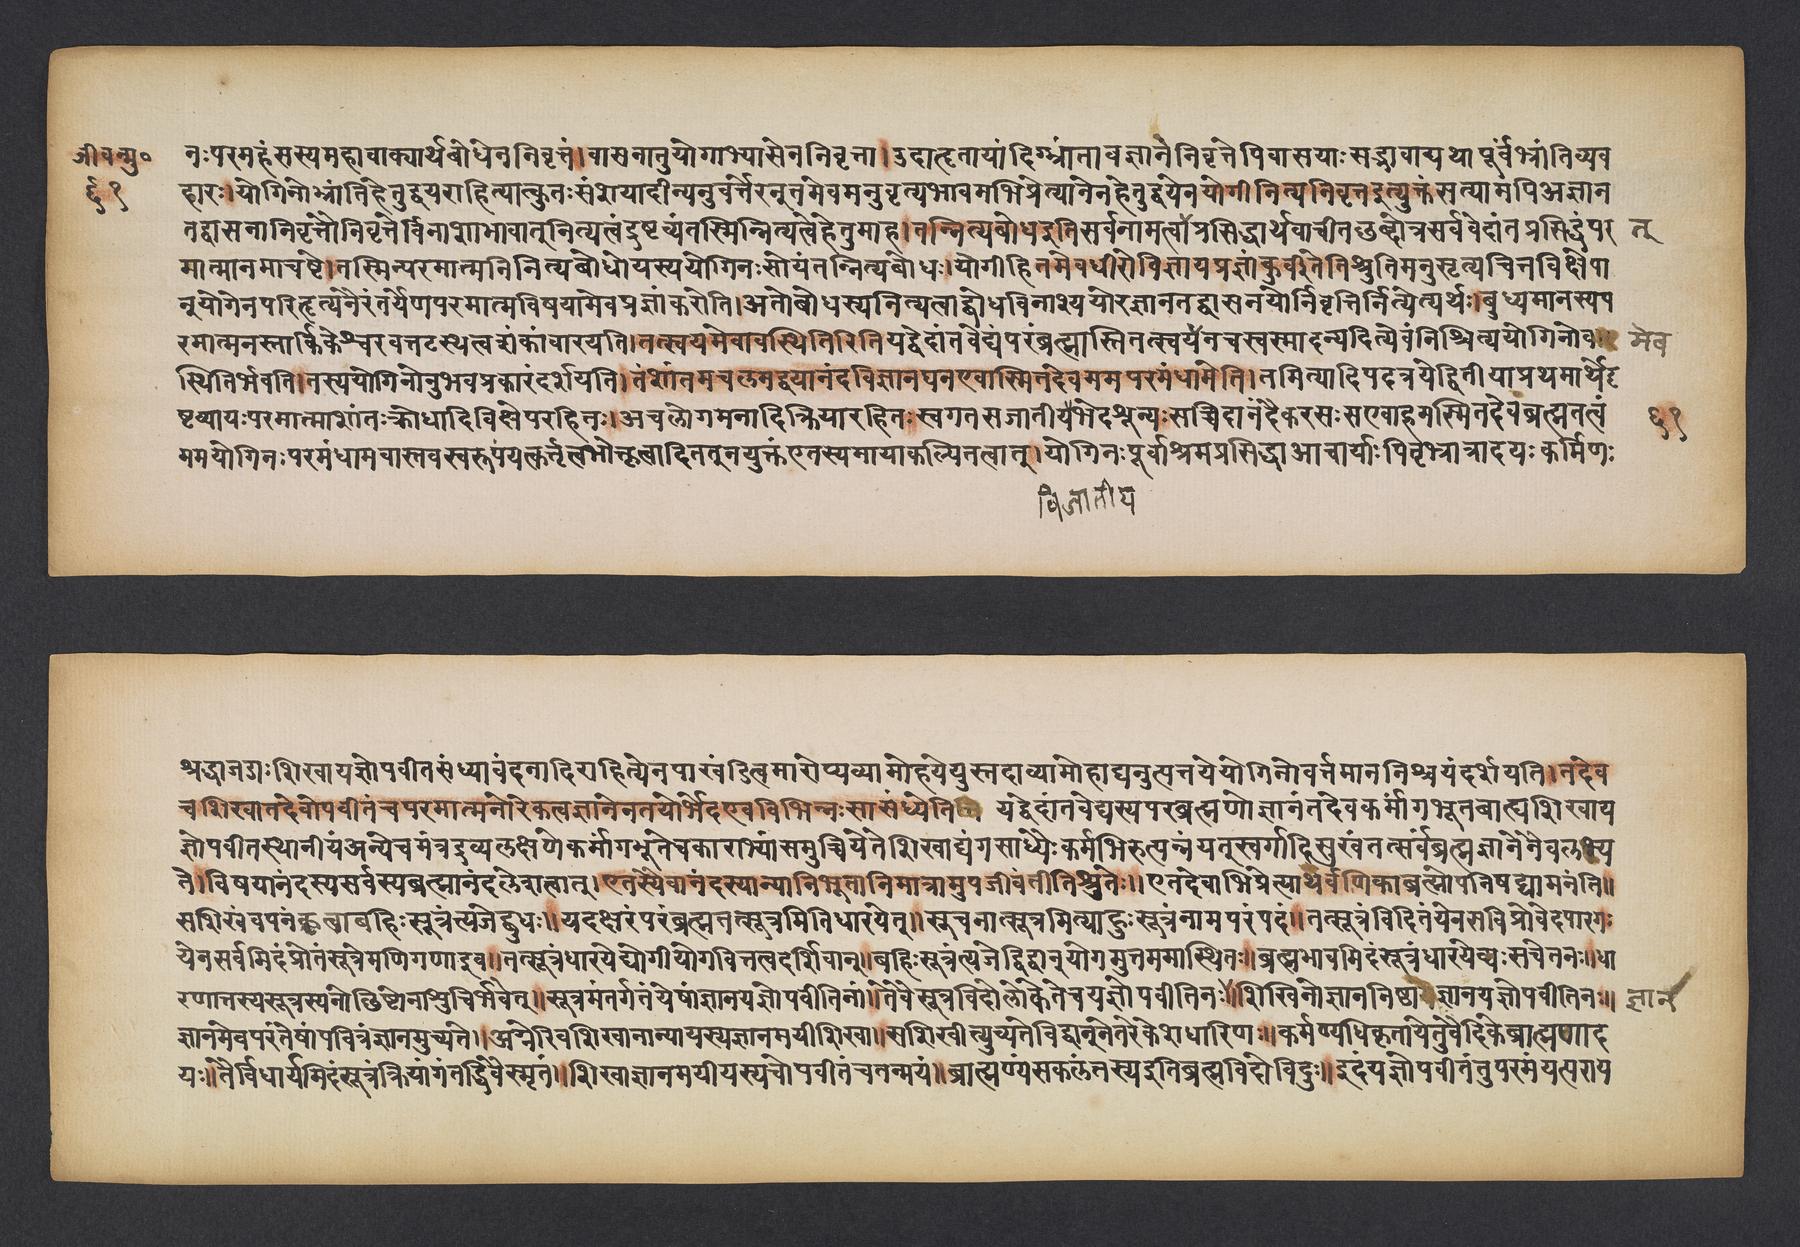 जीवन्मु०
६१
नःपरमहंसस्यमहावाक्यार्थबोधेननिवृत्तं।वासनातुयोगाभ्यासेननिवृत्ता।उदाहृतायांदिग्भ्रांतावज्ञानेनिवृत्तेपिवासयाःसद्भावाद्यथापूर्वंभ्रांतिव्यव
हारः।योगिनोभ्रांतिहेतुद्वयराहित्यात्कुतःसंशयादीन्यनुवर्त्तेरन्नूतमेवमनुवृत्यभावमभिप्रेत्यानेनहेतुद्वयेनयोगीनित्यनिवृत्तइत्युक्तंसत्यामपिअज्ञान
तद्वासनानिवृत्तौनिवृत्तेर्विनाशाभावातुनित्यत्वंद्रष्टव्यंतस्मिन्नित्यत्वेहेतुमाह।तन्नित्यबोधइतिसर्वनामत्वांप्रसिद्धार्थवाचीतछब्दोत्रसर्ववेदांतप्रसिद्धंपर
तू
मात्मानमाचष्टे।तस्मिन्परमात्मनिनित्यबोधोयस्ययोगिनःसोयंतन्नित्यबोधः।योगीहितमेवधीरोविज्ञायप्रज्ञांकुर्वीतेतिश्रुतिमनुसृत्यचित्तविक्षेपा
नुयोगेनपरिहृत्यनैरंतर्येणपरमात्मविषयामेवप्रज्ञांकरोति।अतोबोधस्यनित्यत्वाद्बोधविनाश्ययोरज्ञानतद्वासनयोर्निवृत्तिर्नित्येत्यर्थः।बुध्यमानस्यप
रमात्मनस्तार्किकेश्वरवत्तटस्थत्वशंकांवारयति।तत्स्वयमेवावस्थितिरितियद्वेदांतवेद्यंपरंब्रह्मास्तितत्स्वयंनचस्वस्मादन्यदित्येवंनिश्चित्ययोगिनोव
मेव
स्थितिर्भवति।तस्ययोगिनोनुभवप्रकारंदर्शयति।तंशांतमचलमद्वयानंदविज्ञानघनएवास्मितदेवममपरमंधामेति।तमित्यादिपदत्रयेद्वितीयाप्रथमार्थेदृ
ष्टव्यायःपरमात्माशांतःक्रोधादिविक्षेपरहितः।अचलोगमनादिक्रियारहितःस्वगतसजातीयभेदशून्यःसच्चिदानंदैकरसःसएवाहमस्मितदेवब्रह्मतत्वं
६१
ममयोगिनःपरमंधामवास्तवस्वरूपंयत्कर्त्तृत्वभोक्तृत्वादिनतुनयुक्तंएतस्यमायाकल्पितत्वात्।योगिनःपूर्वाश्रमप्रसिद्धाआचार्याःपितृभ्रात्रादयःकर्मिणः
विजातीय
श्रद्धाजडाःशिखायज्ञोपवीतसंध्यावंदनादिराहित्येनपाखंडित्वमारोप्यव्यामोहयेयुस्तदाव्यामोहाद्यनुत्पत्तयेयोगिनोवर्त्तमाननिश्चयंदर्शयति।तदेव
चशिखातदेवोपवीतंचपरमात्मनोरेकत्वज्ञानेनतयोर्भेदएवविभिन्नःसासंध्येति यद्वेदांतवेद्यस्यपरब्रह्मणोज्ञानंतदेवकर्मांगभूतबाह्यशिखाय
ज्ञोपवीतस्थानीयंअन्येचमंत्रद्रव्यलक्षणेकर्मांगभूतेचकाराभ्यांसमुच्चियेतेशिखाद्यंगसाध्यैःकर्मभिरुत्पन्नंयत्स्वर्गादिसुखंतत्सर्वंब्रह्मज्ञानेनैवलभ्य
ते।विषयानंदस्यसर्वस्यब्रह्मानंदलेशत्वात्।एतस्यैवानंदस्यान्यानिभूतानिमात्रामुपजीवंतीतिश्रुतेः॥एतदेवाभिप्रेत्याथर्वणिकाब्रह्मोपनिषद्यामनंति॥
सशिखंवपनंकृत्वाबहिःसूत्रंत्यजेद्बुधः॥यदक्षरंपरंब्रह्मतत्सूत्रमितिधारयेत्॥सूचनात्सूत्रमित्याहुःसूत्रंनामपरंपदं॥तत्सूत्रंविदितंयेनसविप्रोवेदपारगः
येनसर्वमिदंप्रोतंसूत्रेमणिगणाइव॥तत्सूत्रंधारयेद्योगीयोगवित्तत्वदर्शिवान्॥बहिःसूत्रंत्यजेद्विद्वान्योगमुत्तममास्थितः॥ब्रह्मभावमिदंसूत्रंधारयेद्यःसचेतनः॥धा
रणात्तस्यसूत्रस्यनोछिष्टोनाशुचिर्भवेत्॥सूत्रमंतर्गतंयेषांज्ञानयज्ञोपवीतिनां॥तेवैसूत्रविदोलोकेतेचयज्ञोपवीतिनः॥शिखिनोज्ञाननिष्ठाज्ञानयज्ञोपवीतिनः॥
ज्ञान
ज्ञानमेवपरंतेषांपवित्रंज्ञानमुच्यते॥अग्नेरिवशिखानान्यायस्यज्ञानमयीशिखा॥सशिखीत्युच्यतेविद्वान्नेतरेकेशधारिणः॥कर्मण्यधिकृतायेतुवैदिकेब्राह्मणाद
यः॥तैर्विधार्यमिदंसूत्रंक्रियांगंतद्धिवैस्मृतं॥शिखाज्ञानमयीयस्यचोपवीतंचतन्मयं॥ब्राह्मण्यंसकलंतस्यइतिब्रह्मविदोविदुः॥इदंयज्ञोपवीतंतुपरमंयत्परायं